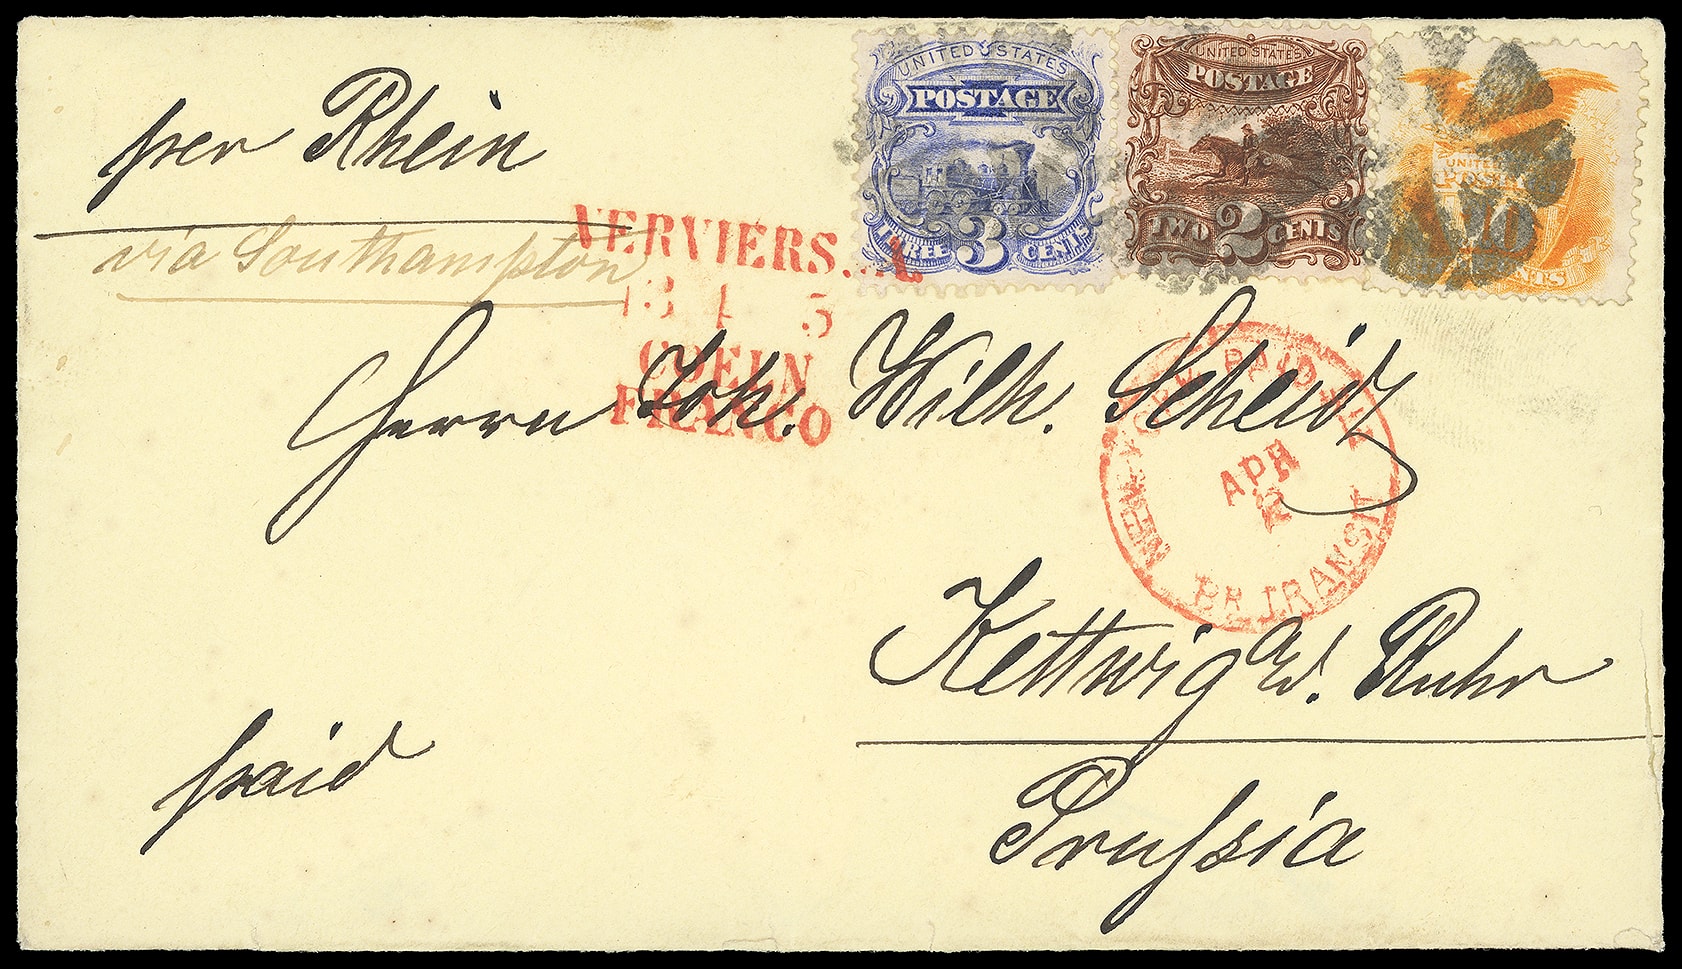 per Rhein
via Southampton
UNITED STATES
POSTAGE
THREE 3 CENTS
UNITED STATES
POSTAGE
TWO 2 CENTS
UNITED
10
CENTS
VERVIERS.
13 4 5
COELN
FRANCO
Herrn Joh. Wilh. Scheidt
NEW-YORK PAID ALL
APR
2
BR TRANSIT
Kettwig a/d. Ruhr
Prussia
paid